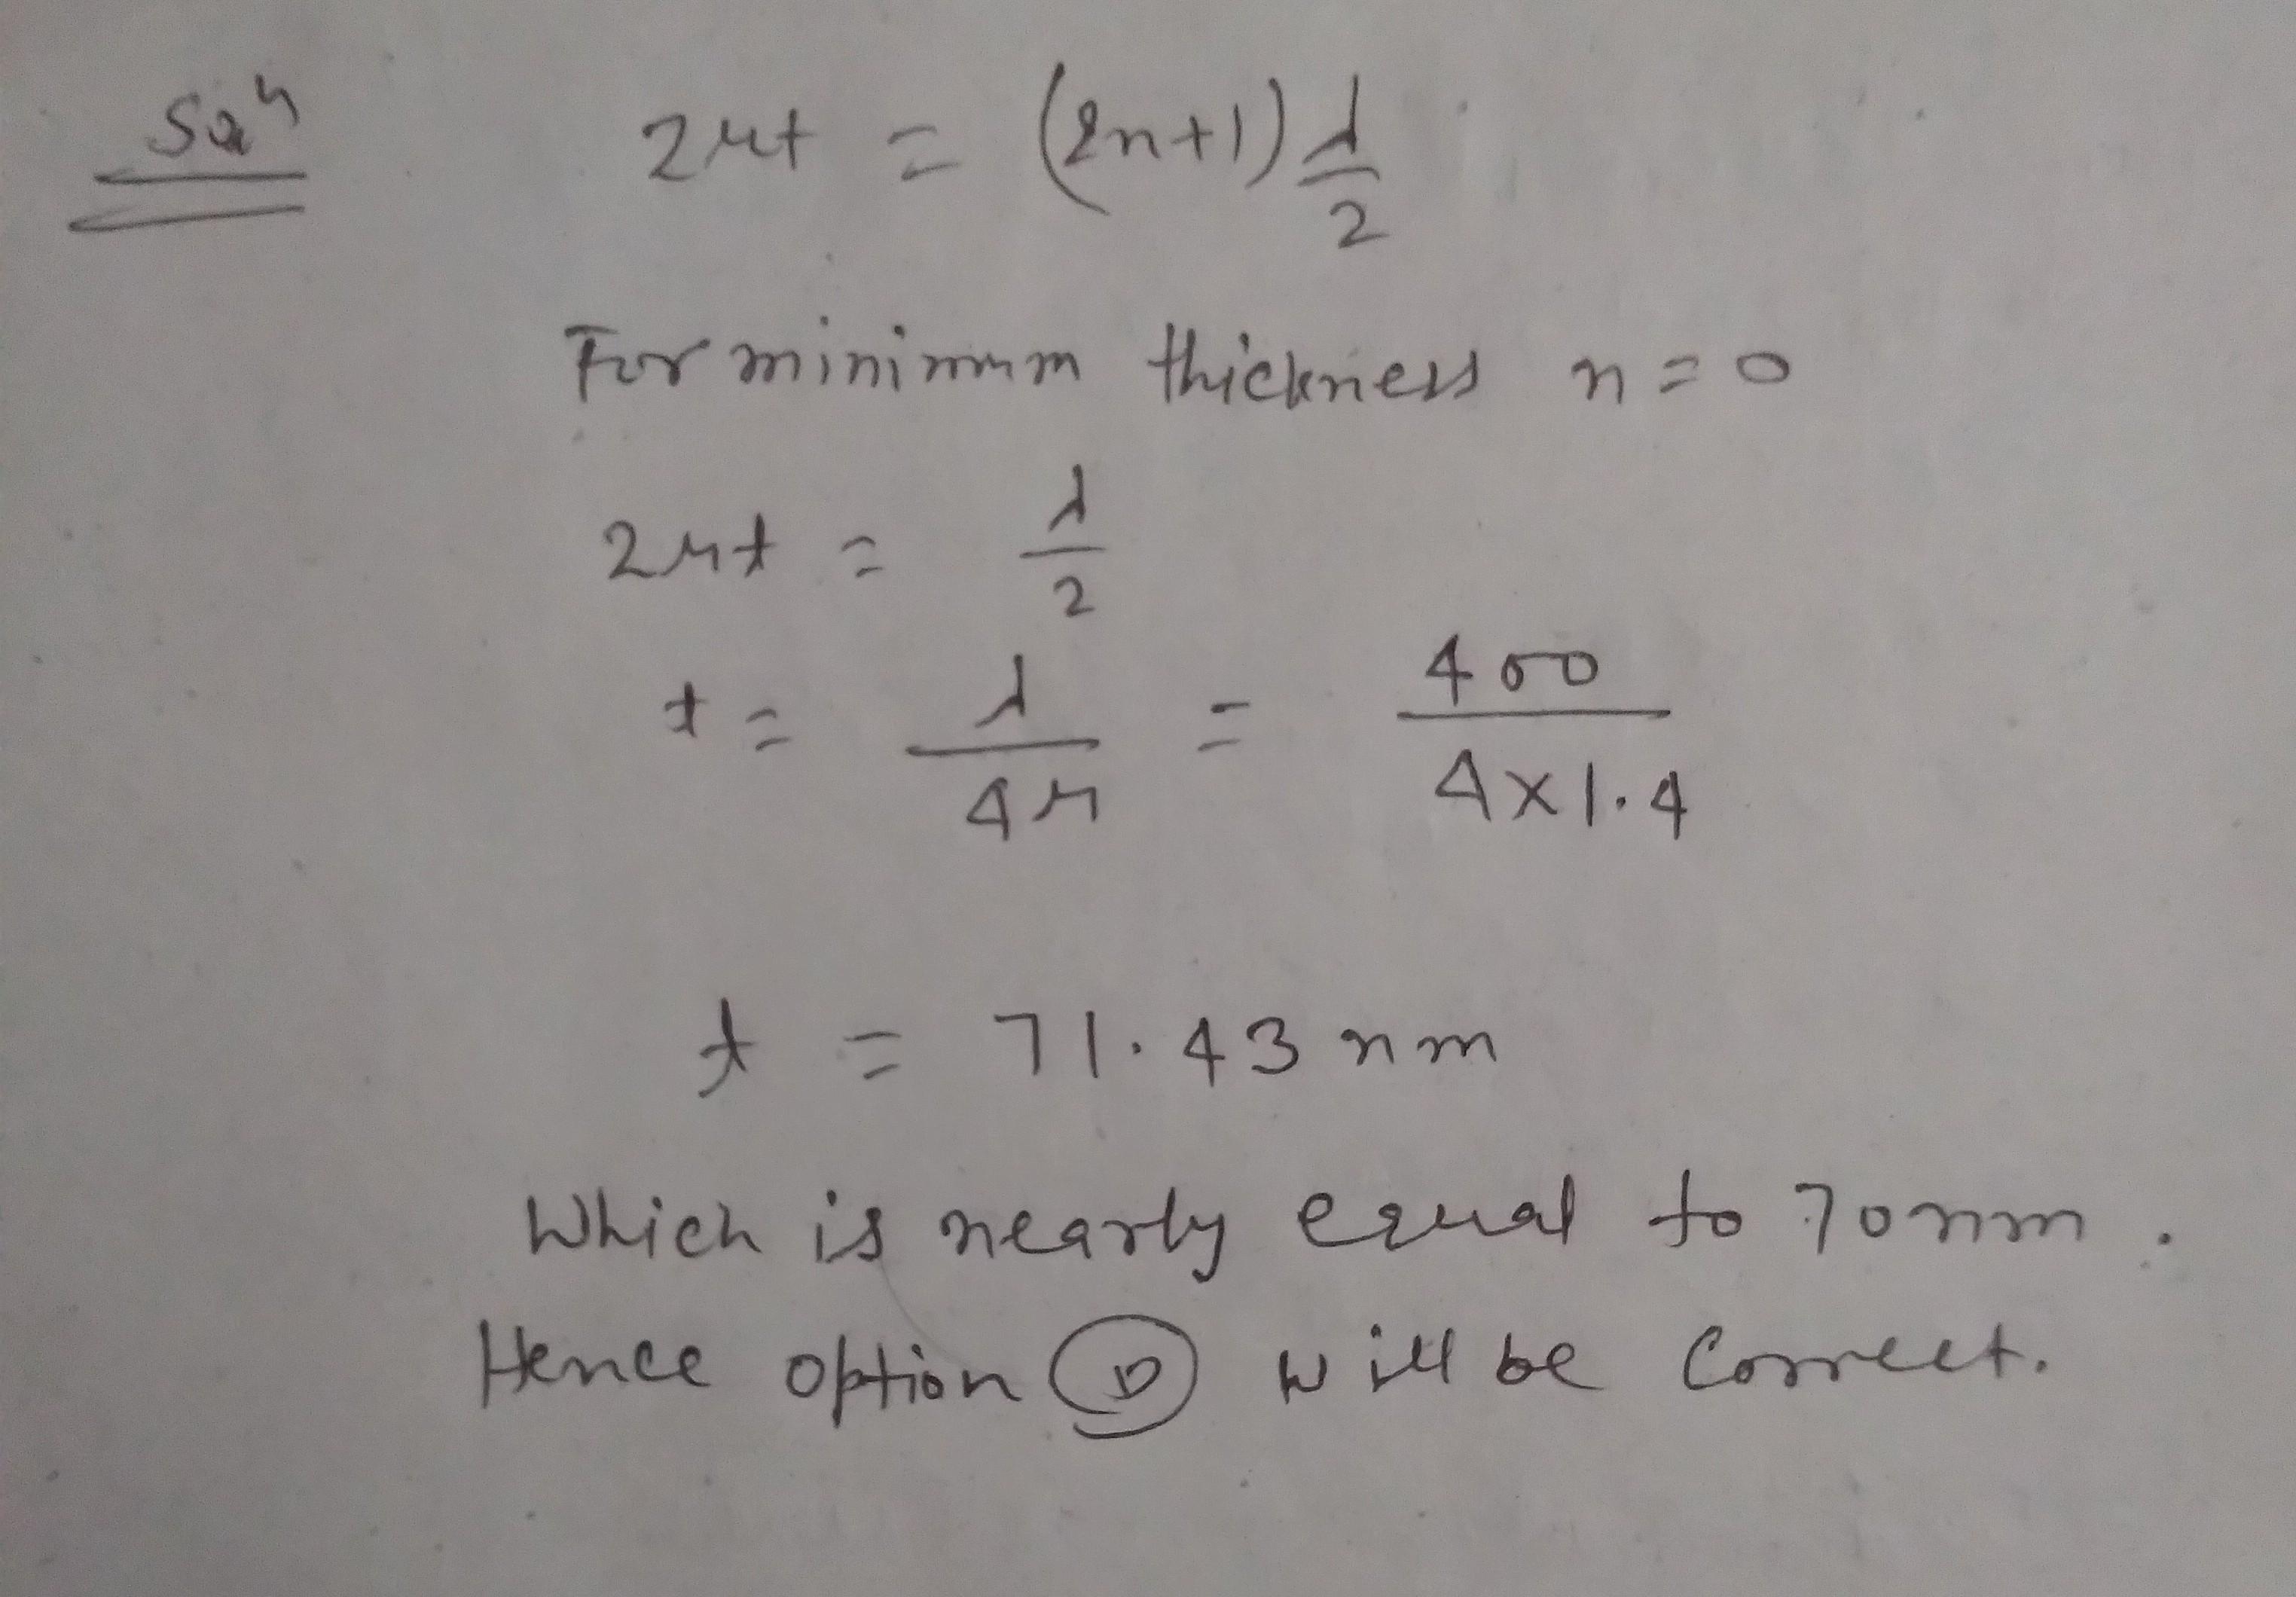 Solⁿ 2μt = (2n+1) λ/2
For minimum thickness n=0
2μt = λ/2
t = λ/4μ = 400/4×1.4
t = 71.43 nm
Which is nearly equal to 70nm.
Hence option D will be correct.